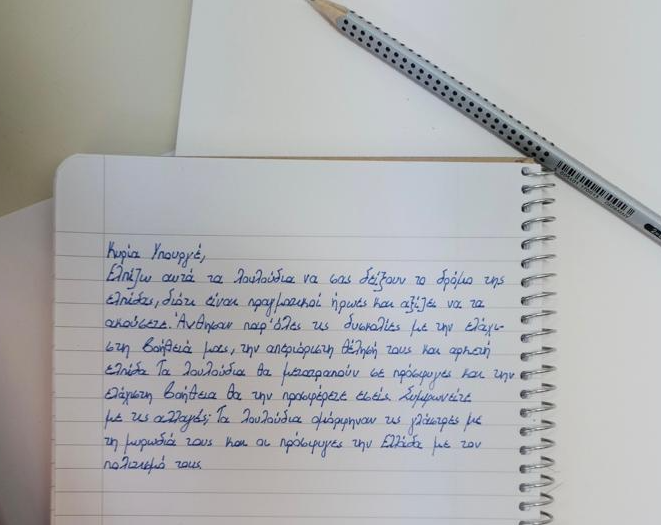 Κυρία Υπουργέ,
Ελπίζω αυτά τα λουλούδια να σας δείξουν το δρόμο της
ελπίδας, διότι είναι πραγματικοί ήρωες και αξίζει να τα
ακούσετε. Άνθησαν παρ' όλες τις δυσκολίες με την ελάχι-
στη βοήθειά μας, την απεριόριστη θέλησή τους και αρκετή
ελπίδα. Τα λουλούδια θα μετατραπούν σε πρόσφυγες και την
ελάχιστη βοήθεια θα την προσφέρετε εσείς. Συμφωνείτε
με τις αλλαγές; Τα λουλούδια ομόρφηναν τις γλάστρες με
τη μυρωδιά τους και οι πρόσφυγες την Ελλάδα με τον
πολιτισμό τους.